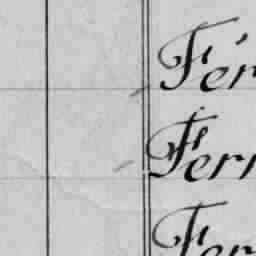 Fér
Ferr
Fer